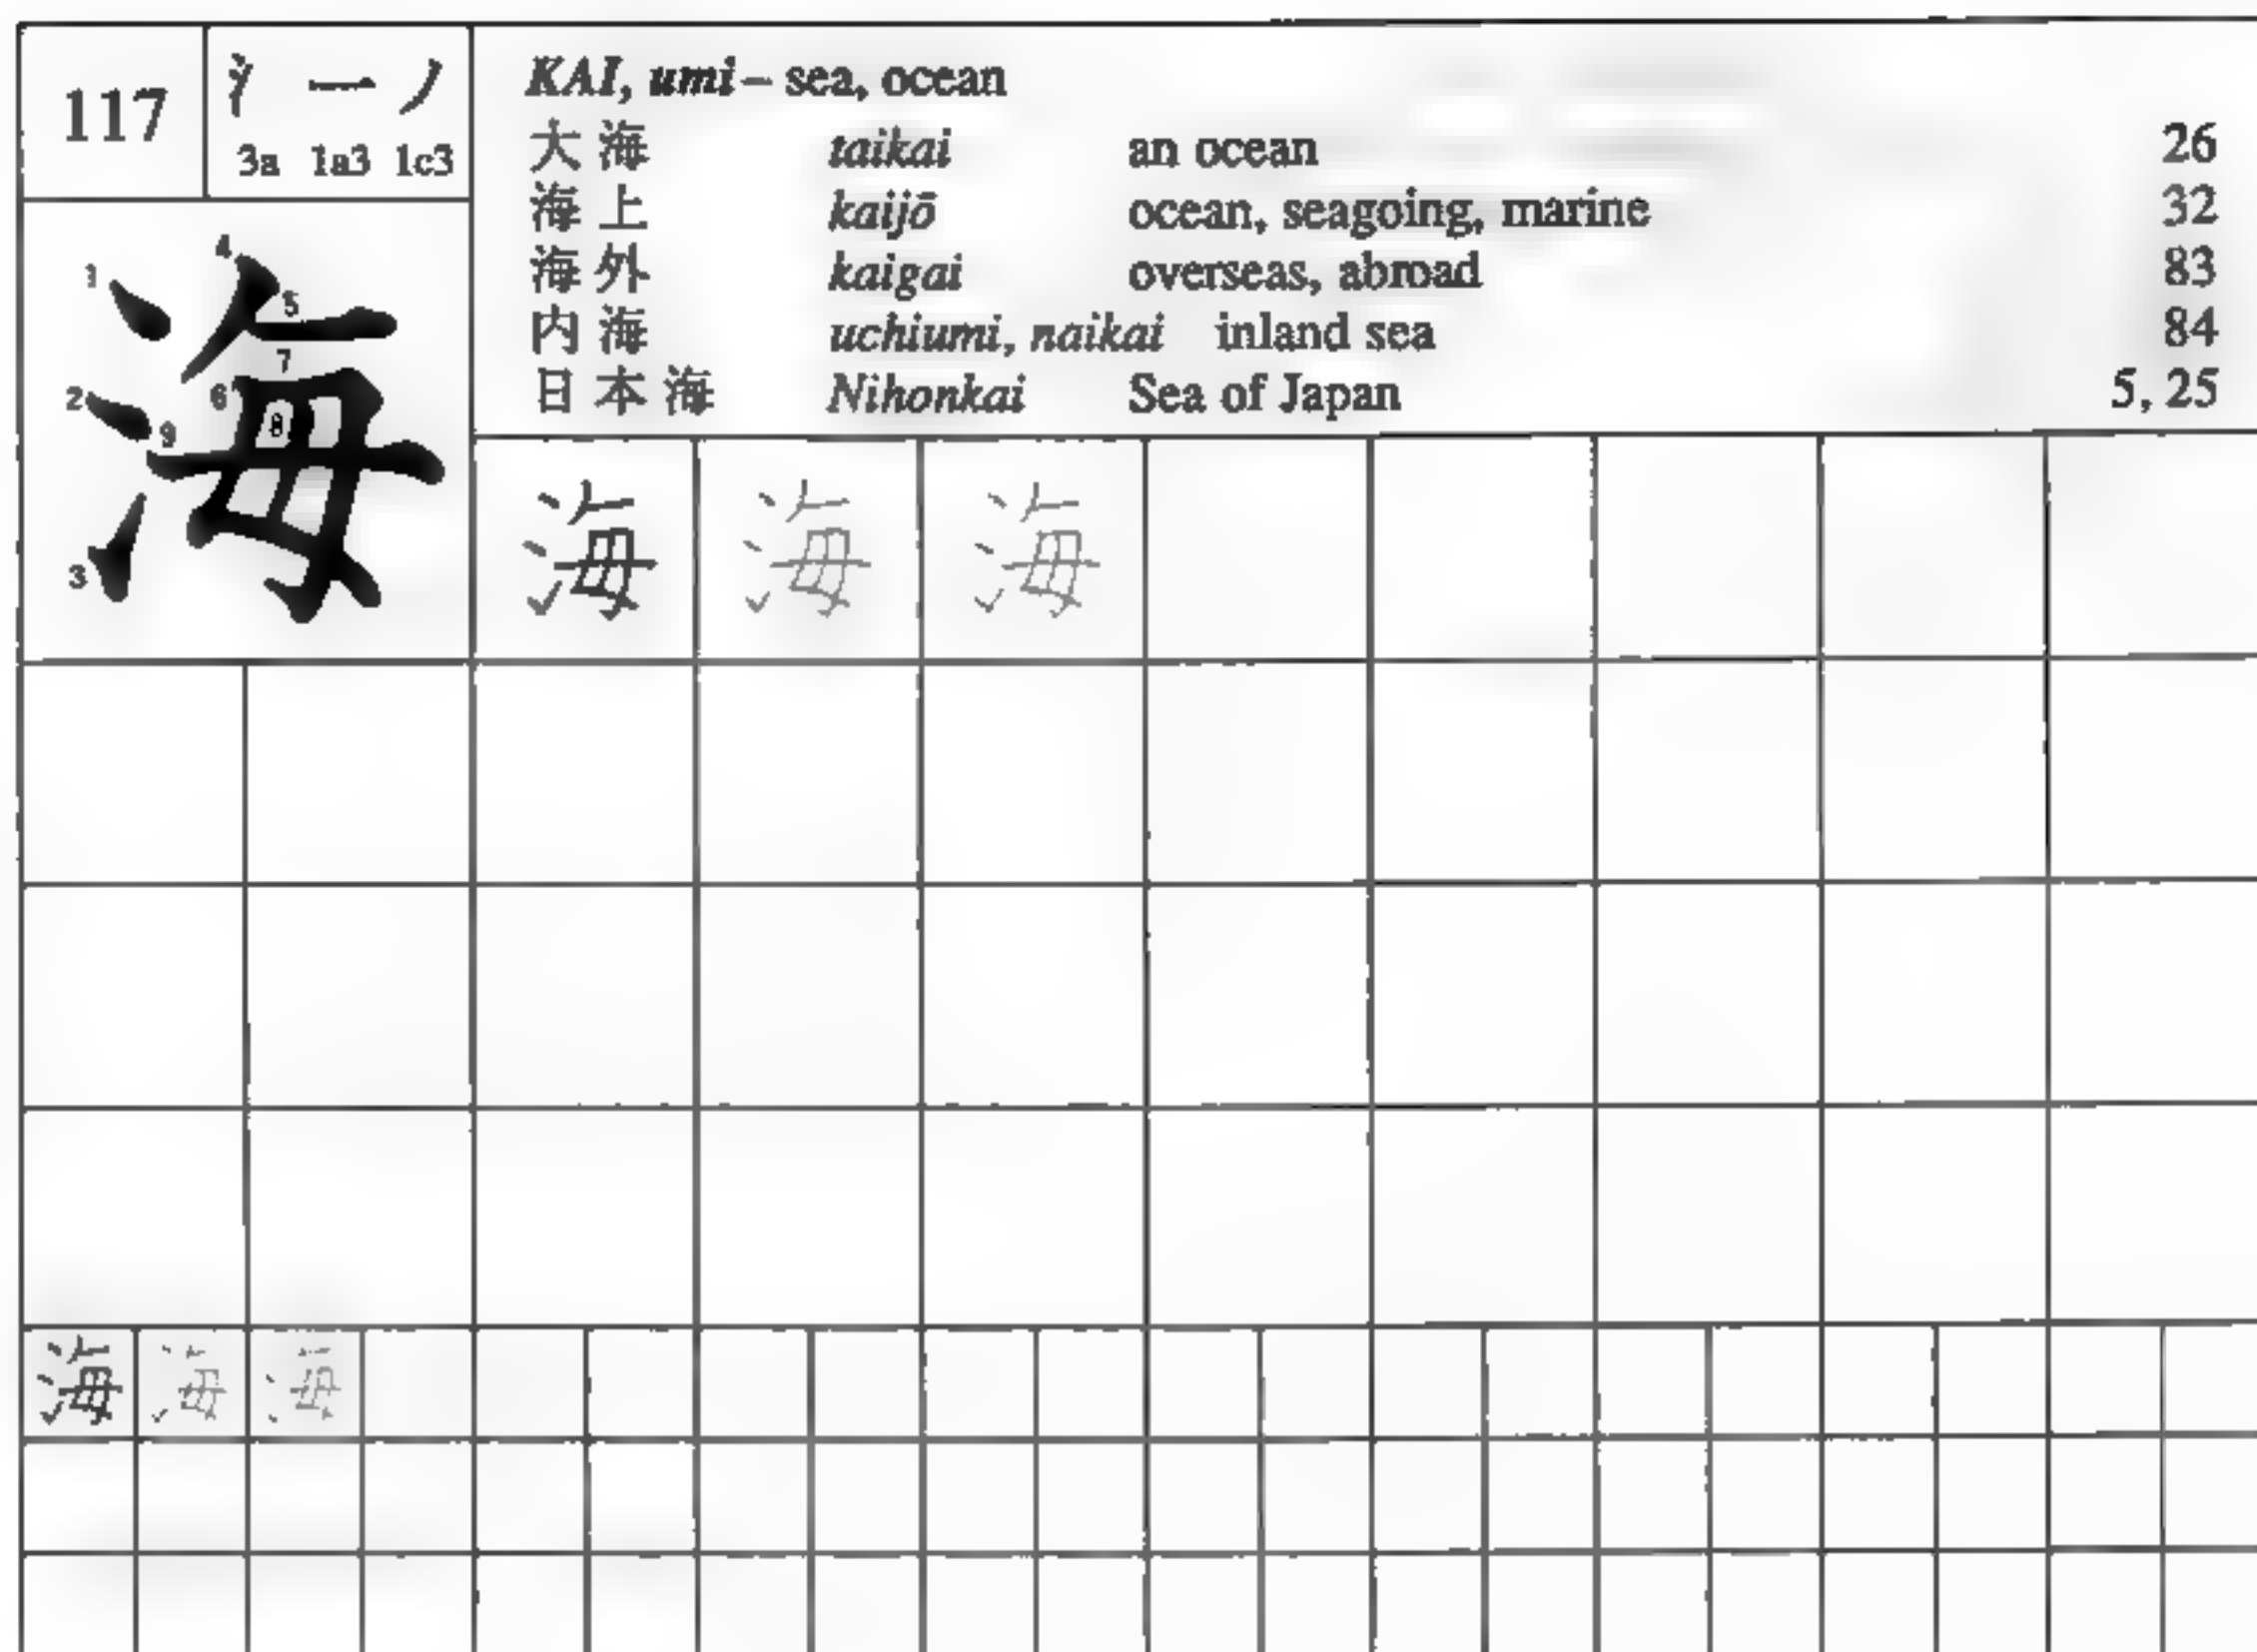 117
氵 一 ノ
3a 1a3 1c3
KAI, umi – sea, ocean
大海 taikai an ocean 26
海上 kaijō ocean, seagoing, marine 32
海外 kaigai overseas, abroad 83
内海 uchiumi, naikai inland sea 84
日本海 Nihonkai Sea of Japan 5, 25
海
1 2 3 4 5 6 7 8 9
海 海 海
海 海 海